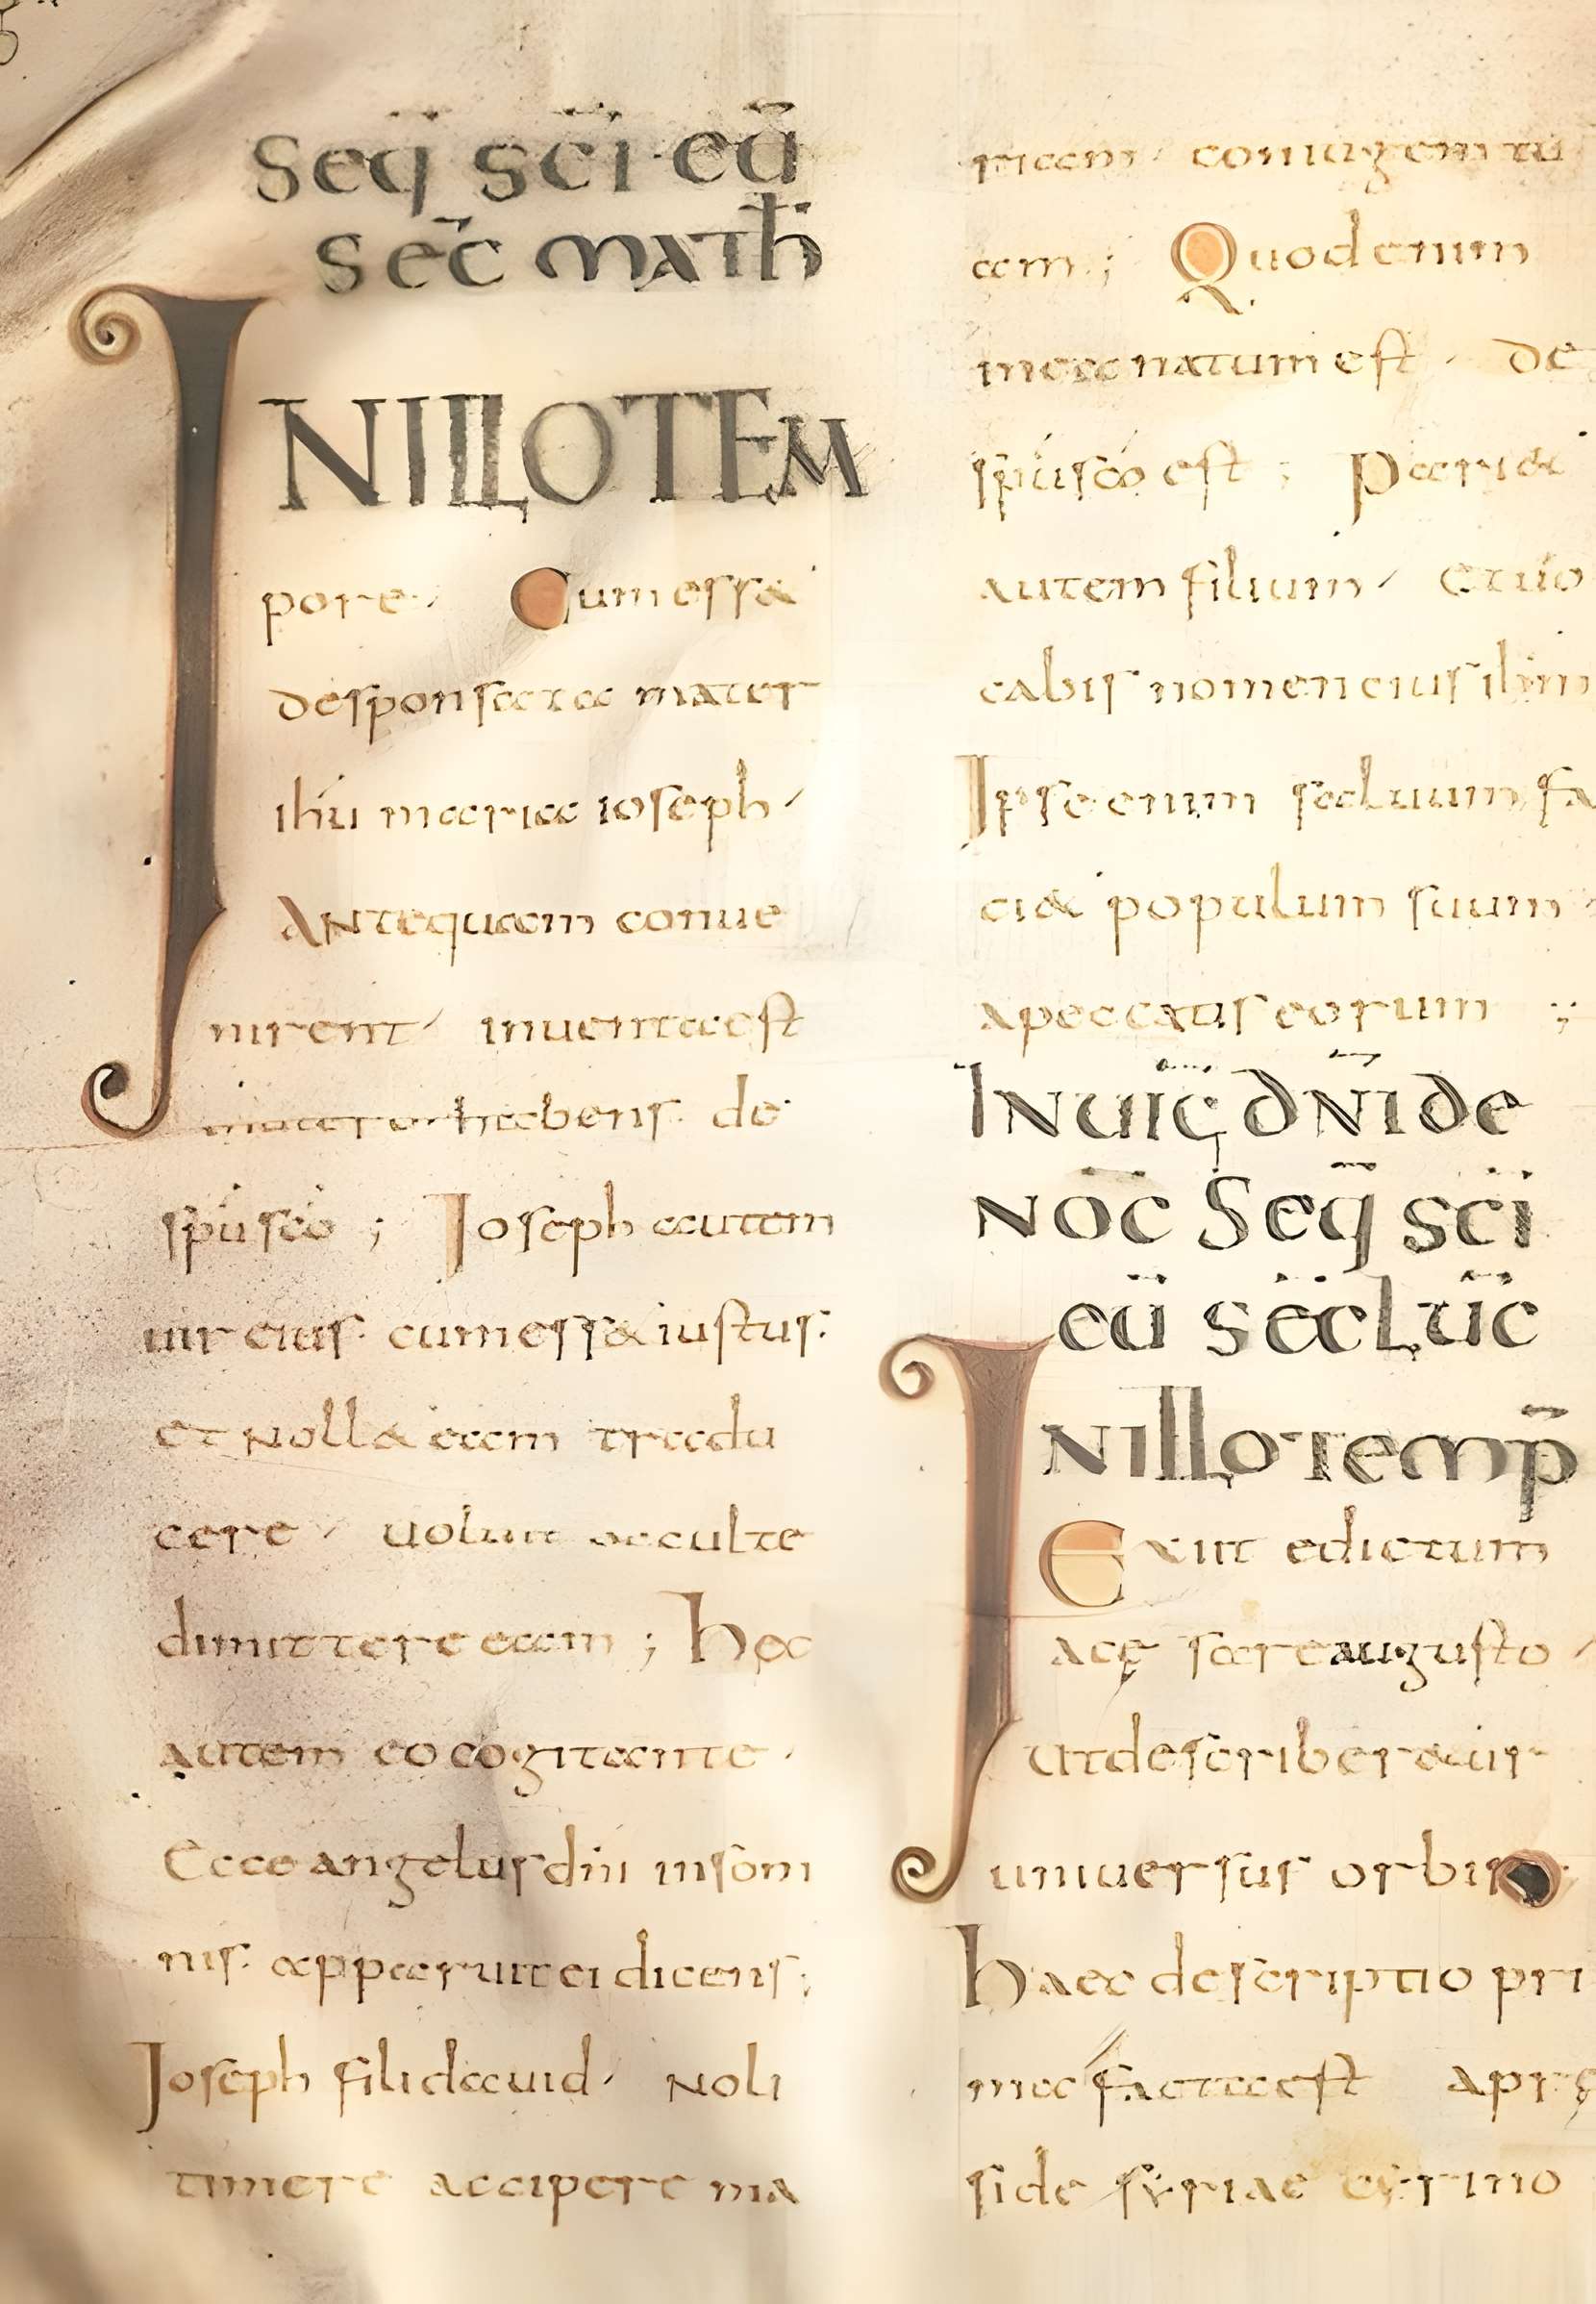 Seq̄ sc̄i eū
sec̄ math̄
INILLOTEM
pore. Cum ess&
desponsata mater
ihū maria ioseph
Antequam conue
nirent inuenta est
habens de
sp̄u sc̄o ; Ioseph autem
uir eius. cum ess& iustus.
et noll& eam tradu
cere uoluit occulte
dimittere eam ; hęc
autem eo cogitante.
Ecce angelus dn̄i in som
nis. apparuit ei dicens;
Ioseph fili dauid noli
timere accipere ma
riam coniugem tu
am ; Quod enim
in ea natum est . de
sp̄u sc̄o est ; pari&
autem filium Et uo
cabis nomen eius ih̄m
Ipse enim saluum fa
ci& populum suum
a peccatis eorum ;
IN UIĢ DN̄I de
NOC̄ Seq̄ sc̄i
eū sec̄ luc̄
INILLO TEMP̄
Exiit edictum
acę sare augusto
ut describeratur
uniuersus orbis
haec descriptio pri
ma facta est a prę
side syriae cyrino